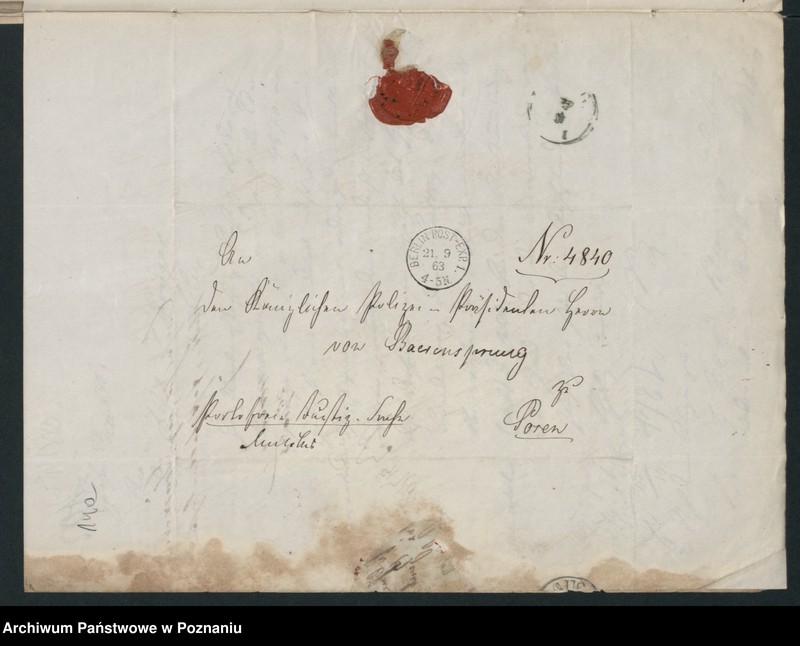 BERLIN POST-EXP. 1.
21 9
63
4-5N.
An
Nr: 4840
den Königlichen Polizei-Präsidenten Herrn
von Baerensprung
zu
Posen
Portofreie Justiz-Sache
Archiwum Państwowe w Poznaniu